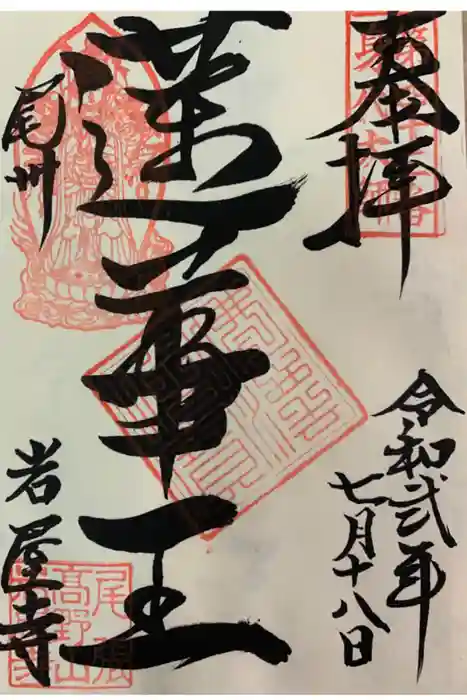 奉拝
令和弐年
七月十八日
蓮華王
尾州
岩屋寺
尾張
高野山